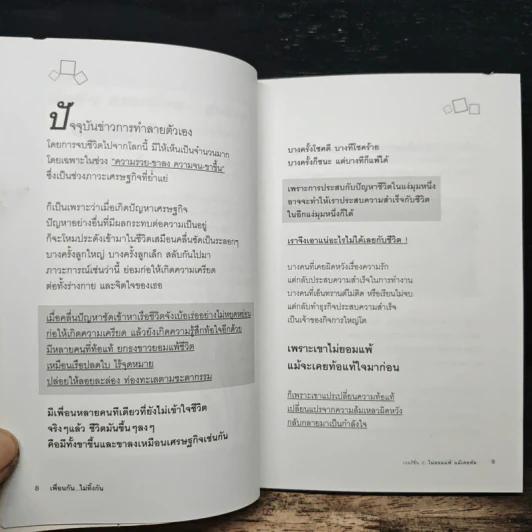 ปัจจุบันข่าวการทำลายตัวเอง
โดยการจบชีวิตไปจากโลกนี้ มีให้เห็นเป็นจำนวนมาก
โดยเฉพาะในช่วง "ความรวย-ขาลง ความจน-ขาขึ้น"
ซึ่งเป็นช่วงภาวะเศรษฐกิจที่ย่ำแย่
ก็เป็นเพราะว่าเมื่อเกิดปัญหาเศรษฐกิจ
ปัญหาอย่างอื่นที่มีผลกระทบต่อความเป็นอยู่
ก็จะโหมประดังเข้ามาในชีวิตเสมือนคลื่นซัดเป็นระลอกๆ
บางครั้งลูกใหญ่ บางครั้งลูกเล็ก สลับกันไปมา
ภาวะการณ์เช่นว่านี้ ย่อมก่อให้เกิดความเครียด
ต่อทั้งร่างกาย และจิตใจของเธอ
เมื่อคลื่นปัญหาซัดเข้าหาเรือชีวิตจังเบ้อเร่ออย่างไม่หยุดหย่อน
ก่อให้เกิดความเครียด แล้วยังเกิดความรู้สึกท้อใจอีกด้วย
มีหลายคนที่ท้อแท้ ยกธงขาวยอมแพ้ชีวิต
เหมือนเรือปลดใบ ไร้จุดหมาย
ปล่อยให้ลอยละล่อง ท่องทะเลตามชะตากรรม
มีเพื่อนหลายคนทีเดียวที่ยังไม่เข้าใจชีวิต
จริงๆแล้ว ชีวิตมันขึ้นๆลงๆ
คือมีทั้งขาขึ้นและขาลงเหมือนเศรษฐกิจเช่นกัน
8 เพื่อนกัน..ไม่ทิ้งกัน
บางครั้งโชคดี บางทีโชคร้าย
บางครั้งก็ชนะ แต่บางทีก็แพ้ได้
เพราะการประสบกับปัญหาชีวิตในแง่มุมหนึ่ง
อาจจะทำให้เราประสบความสำเร็จกับชีวิต
ในอีกแง่มุมหนึ่งก็ได้
เราจึงเอาแน่อะไรไม่ได้เลยกับชีวิต !
บางคนที่เคยผิดหวังเรื่องความรัก
แต่กลับประสบความสำเร็จในการทำงาน
บางคนที่เอ็นทรานต์ไม่ติด หรือเรียนไม่จบ
แต่กลับทำธุรกิจประสบความสำเร็จ
เป็นเจ้าของกิจการใหญ่โต
เพราะเขาไม่ยอมแพ้
แม้จะเคยท้อแท้ใจมาก่อน
ก็เพราะเขาแปรเปลี่ยนความท้อแท้
เปลี่ยนแปรจากความล้มเหลวผิดหวัง
กลับกลายมาเป็นกำลังใจ
ไม่ยอมแพ้ แม้เคยท้อ 9